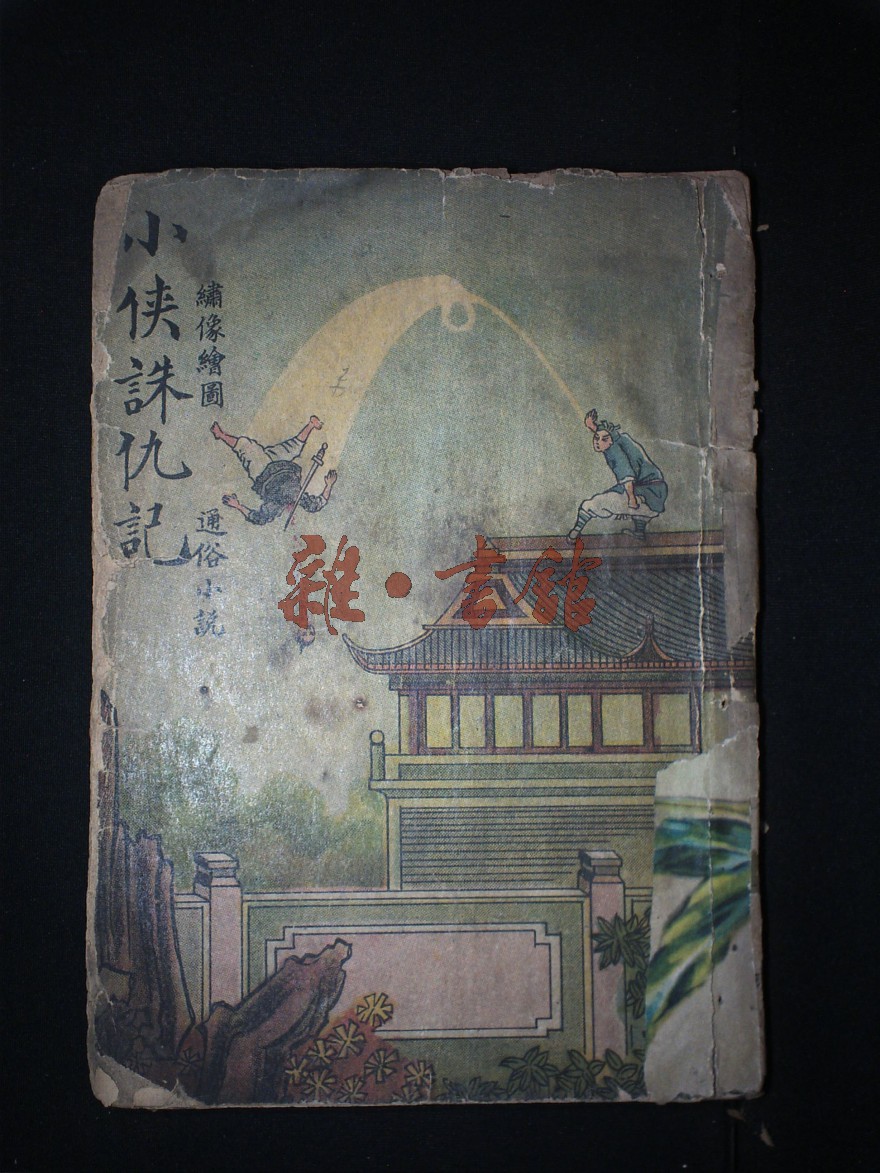 小侠誅仇記
繡像繪圖
通俗小説
雜·書館